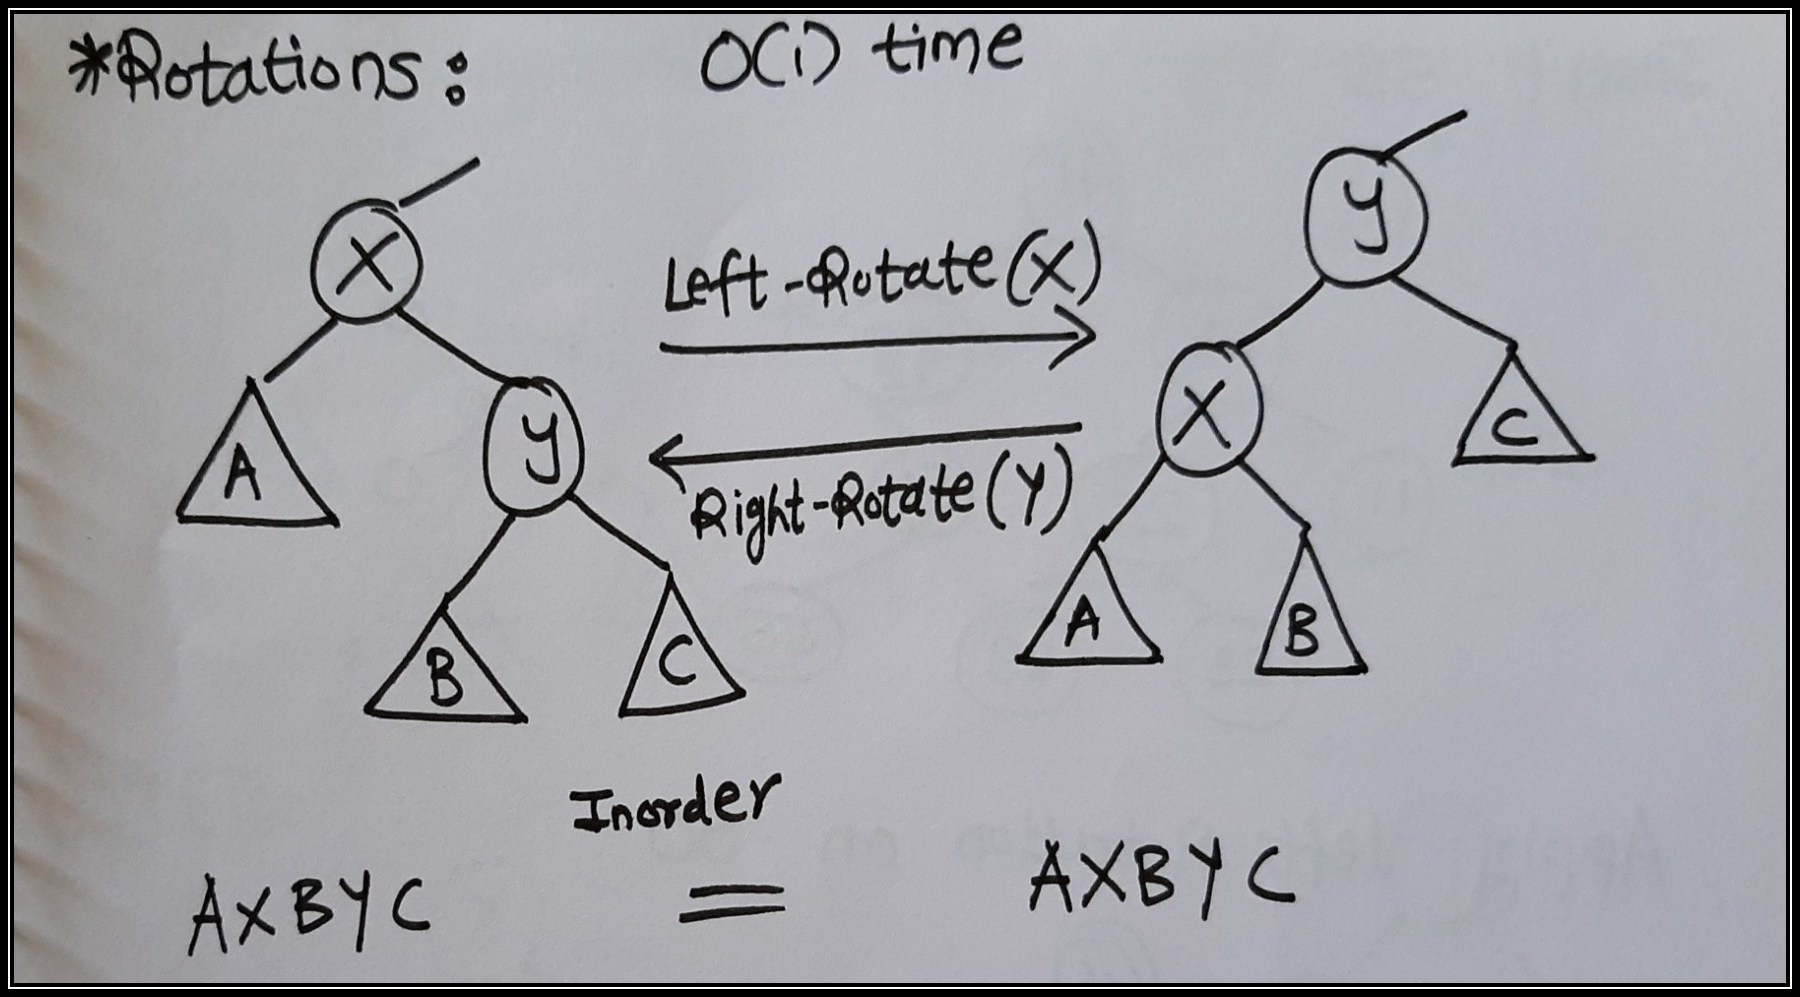 *Rotations: O(1) time
X
Y
Left-Rotate(X)
Y
X
C
A
Right-Rotate(Y)
A
B
B
C
Inorder
AXBYC = AXBYC